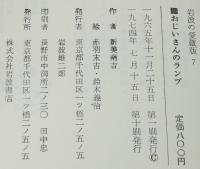 岩波の愛蔵版 7
おじいさんのランプ
定価八〇〇円
一九六五年十一月二十五日 第一刷発行©
一九七四年七月十五日 第十刷発行
作者 新美南吉
絵 赤羽末吉・鈴木義治
発行者 岩波雄二郎
東京都千代田区一ツ橋二ノ五ノ五
印刷者 田中忠
長野市中御所二ノ三〇
発行所
東京都千代田区一ツ橋二ノ五ノ五
株式会社 岩波書店